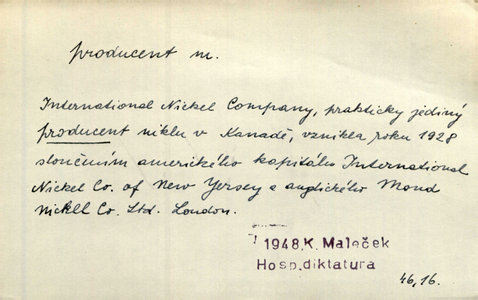 producent m.
International Nickel Company, prakticky jediný
producent niklu v Kanadě, vznikla roku 1928
sloučením amerického kapitálu International
Nickel Co. of New Yersey a anglického Mond
Nickll Co. Ltd. London.
1948, K. Maleček
Hosp.diktatura
46,16.